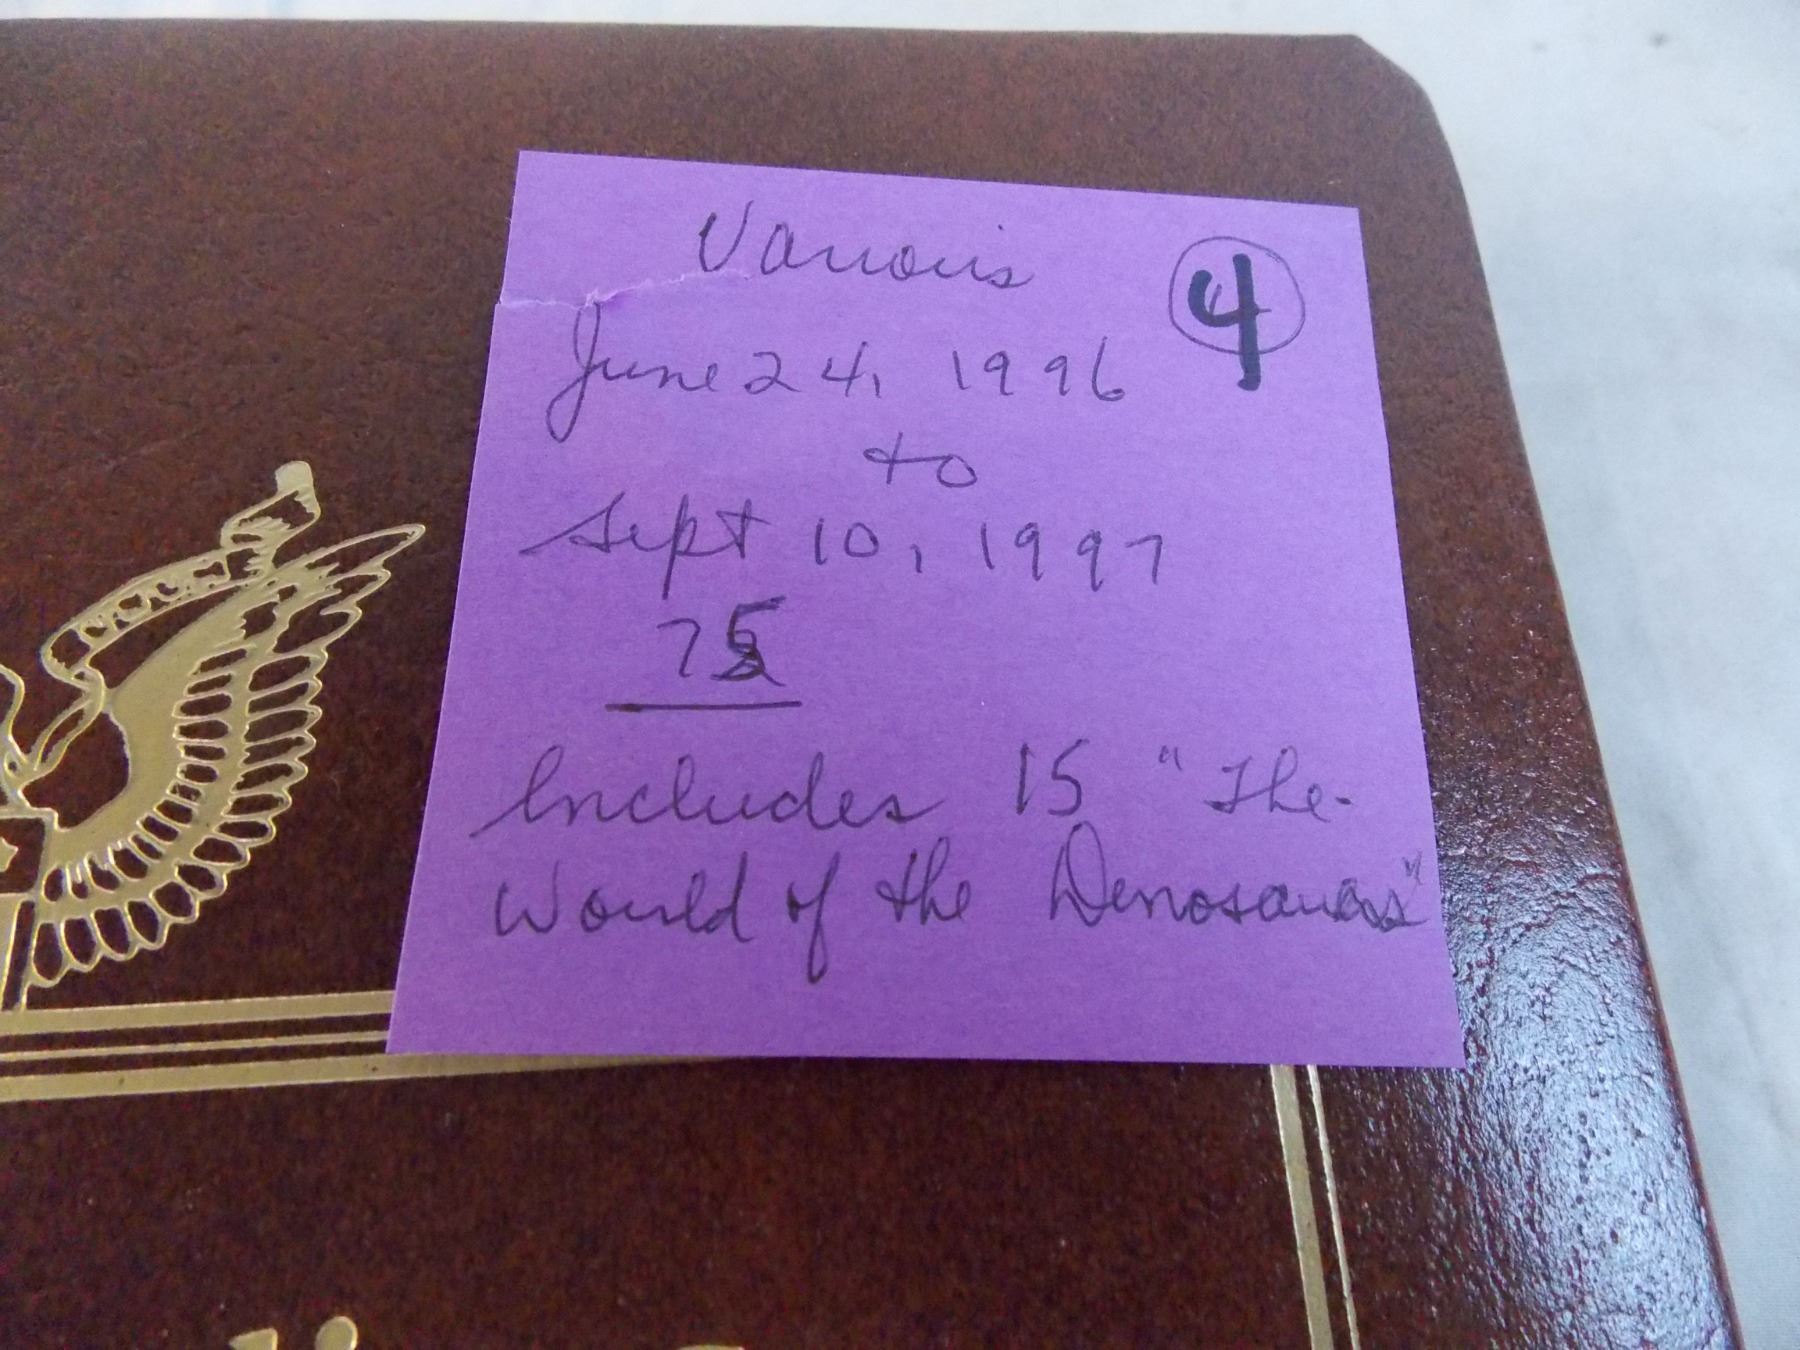 Various
4
June 24, 1996
to
Sept 10, 1997
75
Includes 15 "The
World of the Dinosaurs"